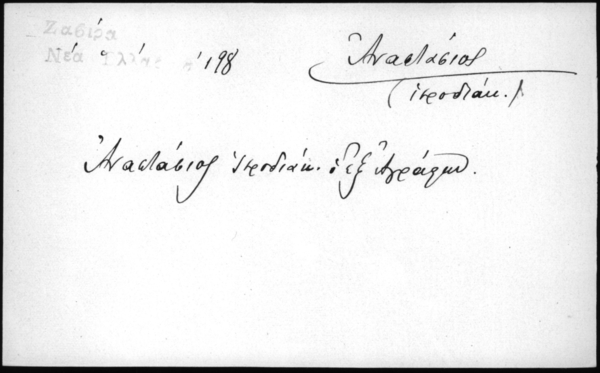 Ζαβίρα
Νέα Ἑλλάς 198
Ἀναστάσιος
(ἱεροδιάκ.)
Ἀναστάσιος ἱεροδιάκ. ὁ ἐξ Ἀγράφων.